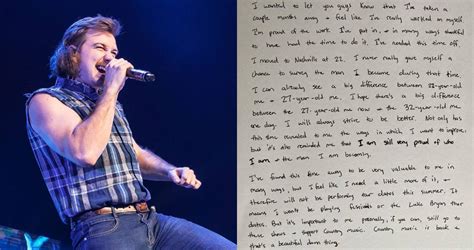 I wanted to let you guys know that I've taken a
couple months away + feel like I've really worked on myself
I'm proud of the work I've put in, + in many ways thankful
to have had the time to do it. I've needed this time off.
I moved to Nashville at 22. I never really gave myself a
chance to survey the man I became during that time.
I can already see a big difference between 28-year-old
me + 27-year-old me. I hope there's a big difference
between the 27-year-old me now + the 32-year-old me
one day. I will always strive to be better. Not only has
this time revealed to me the ways in which I want to improve
but it's also reminded me that I am still very proud of who
I am + the man I am becoming.
I've found this time away to be very valuable to me in
many ways, but I feel like I need a little more of it, +
therefore will not be performing tour dates this summer. It
means I won't be playing festivals or the Luke Bryan tour
dates. But it's important to me personally, if you can, still go to
these shows + support Country music. Country music is back +
that's a beautiful damn thing.